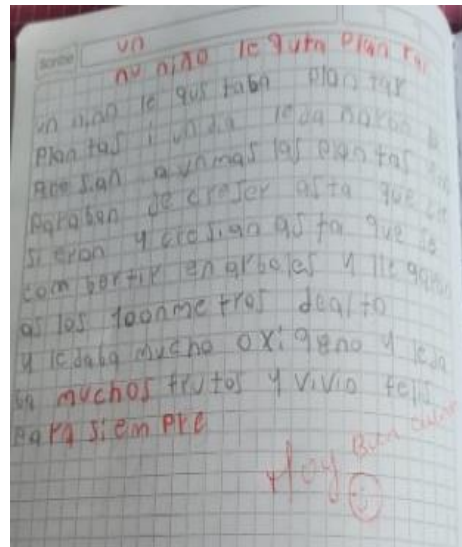 scribe
un
nu niño le guta plan tar
un niño le gus taba plan tar
plan tas i un dia le da
a un mas las plan tas
paraban de creser asta que
si eron y cresian as ta que se
com bertir en arboles y lle garon
as los 100 me tros de alto
y le daba mucho oxi geno y le da
ba muchos frutos y vivio felis
para siem pre
Muy Bien